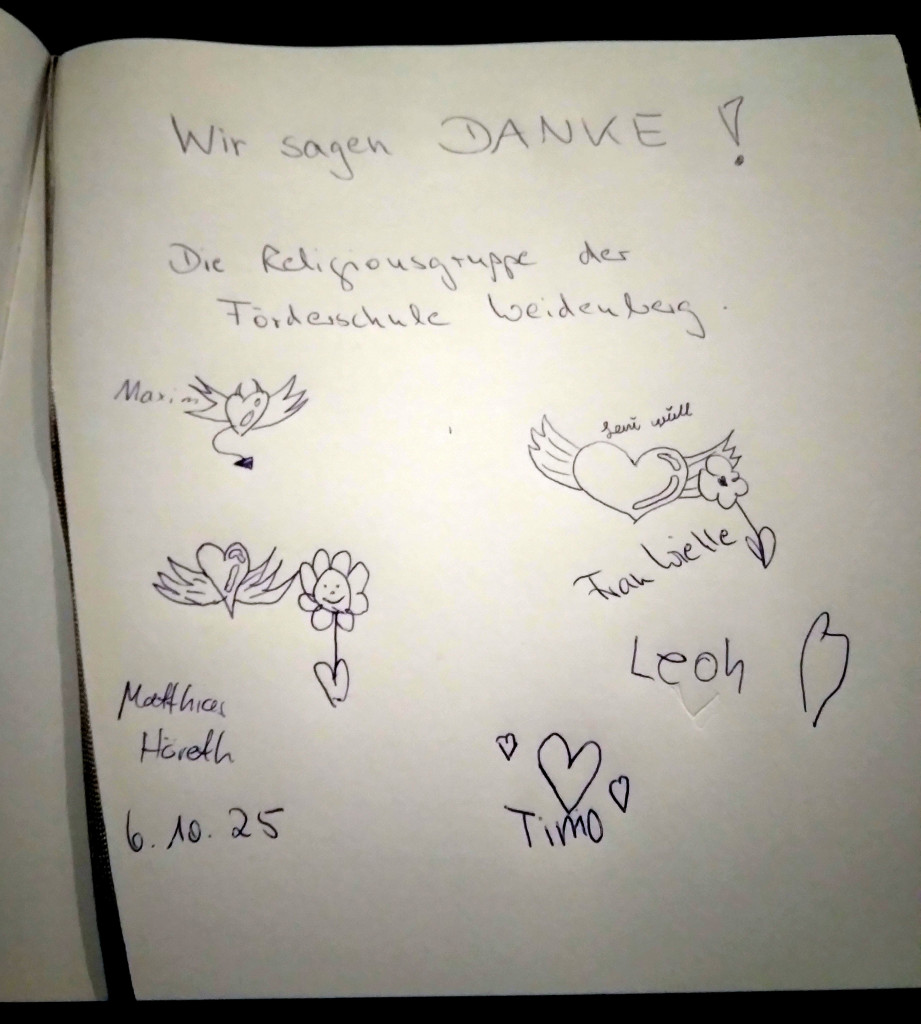 Wir sagen DANKE !
Die Religionsgruppe der
Förderschule Weidenberg.
Maxim
Frau
Leon
Matthias
Höreth
Timo
6.10.25